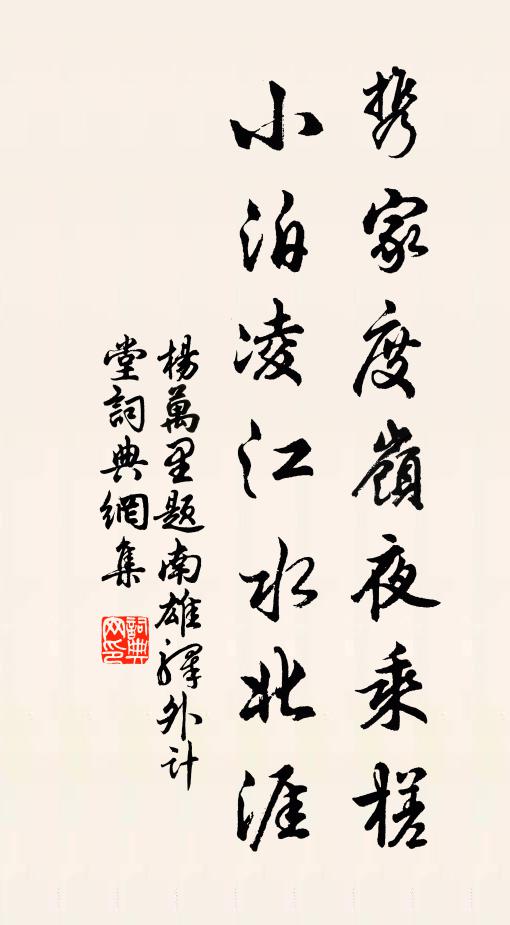 携家度嶺夜乘槎
小泊凌江水北涯
楊萬里题南雄驛外計
堂詞典網集
詞典网印